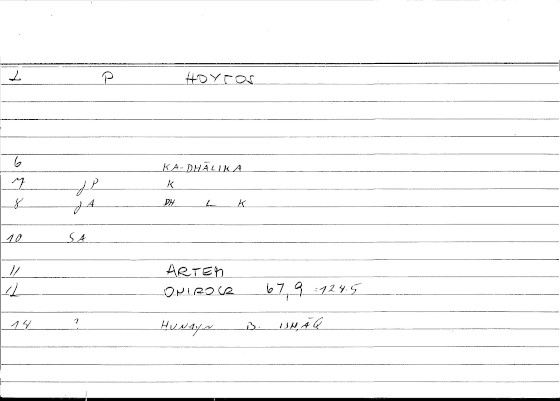 1 P HOYTOS
6 KA-DHĀLIKA
7 jP K
8 jA DH L K
10 SA
11 ARTEM
12 ONIROCR 67,9 =124.5
14 ? HUNAYN B. ISHĀQ